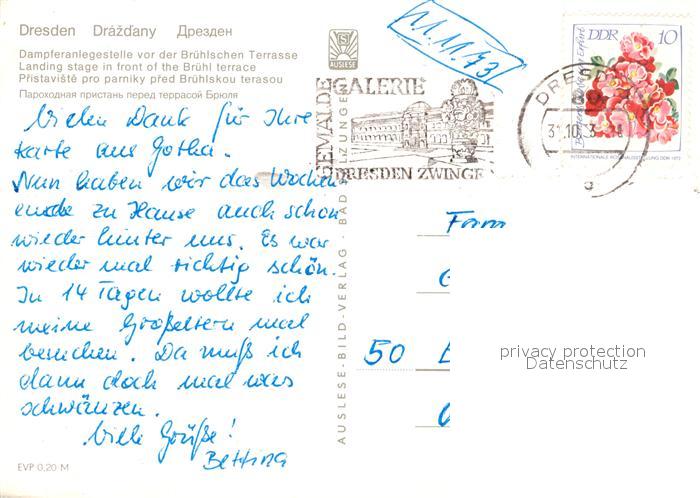 Dresden Drážďany Дрезден
Dampferanlegestelle vor der Brühlschen Terrasse
Landing stage in front of the Brühl terrace
Přístaviště pro parníky před Brühlskou terasou
Пароходная пристань перед террасой Брюля
AUSLESE
11.11.73
DDR 10
INTERNATIONALE ROSENAUSSTELLUNG DDR 1972
GEMÄLDE GALERIE
DRESDEN ZWINGER
DRESD
31.10. 3
Vielen Dank für Ihre
Karte aus Gotha.
Nun haben wir das Wochen
ende zu Hause auch schon
wieder hinter uns. Es war
wieder mal richtig schön.
In 14 Tagen wollte ich
meine Großeltern mal
besuchen. Da muß ich
dann doch mal was
schwänzen.
Viele Grüße!
Bettina
Fam
50
AUSLESE-BILD-VERLAG · BAD SALZUNGEN
privacy protection
Datenschutz
EVP 0,20 M